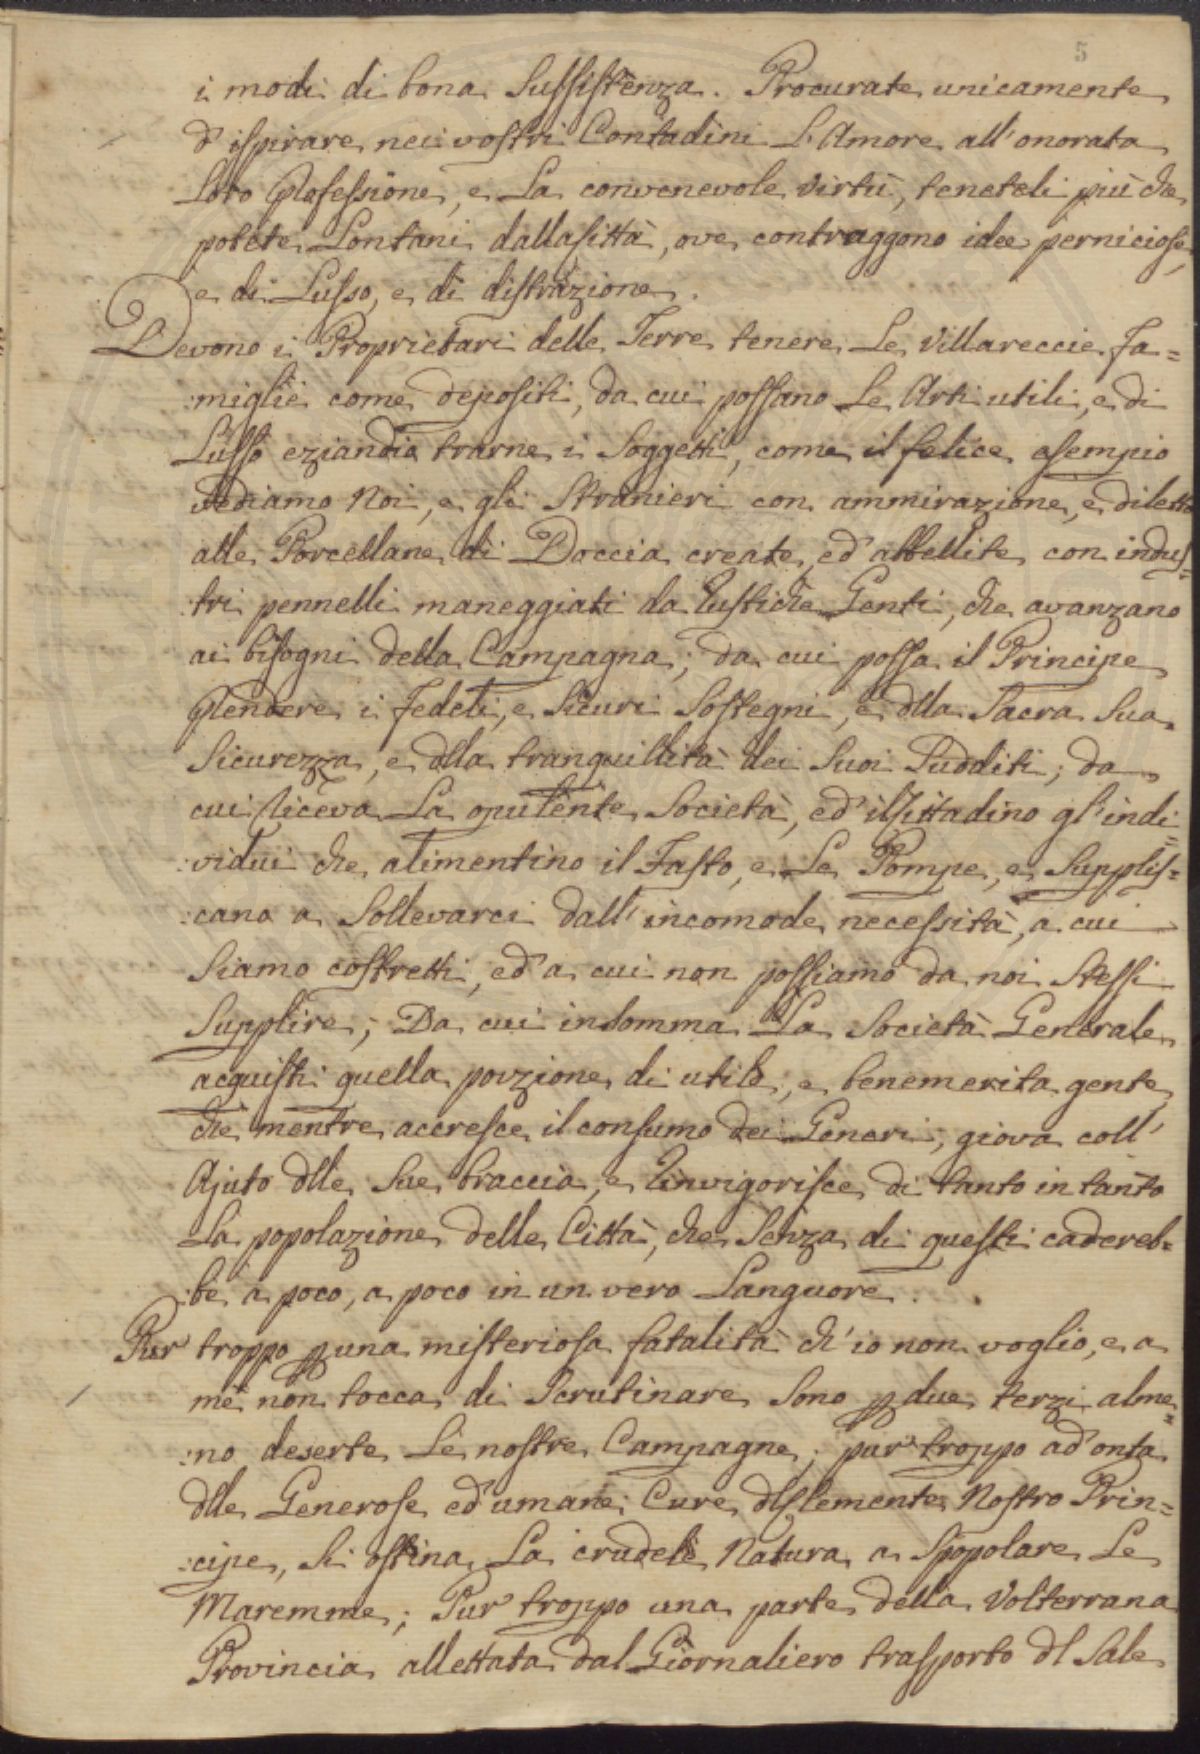 5
i modi di bona Sussistenza. Procurate unicamente
d'ispirare nei vostri Contadini L'Amore all'onorata
Loro Professione, e La convenevole Virtù, teneteli più che
potete Lontani dalla Città, ove contraggono idee perniciose,
e di Lusso, e di distrazione.
Devono i Proprietari delle Terre tenere Le Villareccie fa=
:miglie come depositi, da cui possano Le Arti utili, e di
Lusso eziandio trarne i Soggetti, come il felice esempio
vediamo Noi, e gli Stranieri con ammirazione, e diletto
alle Porcellane di Doccia create, ed abbellite con indus=
:tri pennelli maneggiati da Rustiche Genti, che avanzano
ai bisogni della Campagna; da cui possa il Principe
Prendere i fedeli, e Sicuri Sostegni, e dlla Sacra Sua
Sicurezza, e dlla tranquillità dei Suoi Sudditi; da
cui Riceva La opulente Società, ed il Cittadino gl'indi=
:vidui che alimentino il Fasto, e Le Pompe, e Supplis=
:cano a Sollevarci dall'incomode necessità, a cui
Siamo costretti, ed a cui non possiamo da noi Stessi
Supplire; Da cui insomma La Società Generale
acquisti quella porzione di utile, e benemerita gente
che mentre accresce il consumo dei Generi, giova coll'
Ajuto dlle Sue braccia, e Rinvigorisce di tanto in tanto
La popolazione delle Città, che Senza di questi cadereb=
:be a poco, a poco in un vero Languore.
Pur troppo p una misteriosa fatalità ch'io non voglio, e a
me non tocca di Scrutinare Sono p due terzi alme=
:no deserte Le nostre Campagne; pur troppo ad onta
dlle Generose ed umane Cure dl Clemente Nostro Prin=
:cipe, Si ostina La crudele Natura a Spopolare Le
Maremme; Pur troppo una parte della Volterrana
Provincia allettata dal Giornaliero trasporto dl Sale